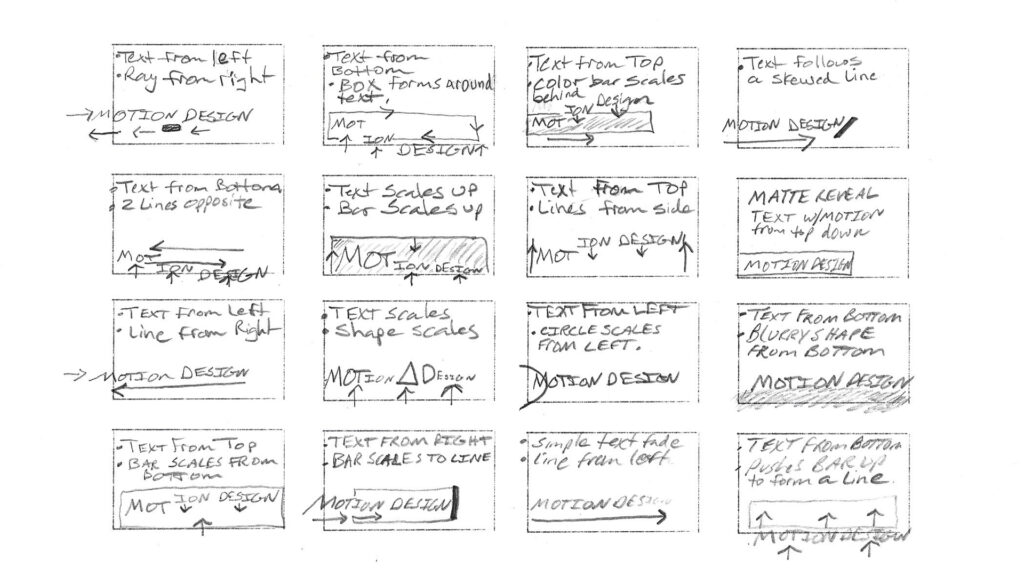 •Text from left
•Ray from right
MOTION DESIGN
•Text from
Bottom
•BOX forms around
text.
MOT
ION
DESIGN
•Text from Top
•color bar scales
behind
ION Design
MOT
•Text follows
a skewed line
MOTION DESIGN
•Text from Bottom
•2 Lines opposite
MOT
ION DESIGN
•Text Scales up
•Bar Scales up
MOT
ION DESIGN
•Text from Top
•Lines from side
ION DESIGN
MOT
MATTE REVEAL
TEXT w/MOTION
from top down
MOTION DESIGN
•Text from Left
•Line from Right
MOTION DESIGN
•TEXT Scales
•Shape scales
MOTION Δ DESIGN
•TEXT FROM LEFT
•CIRCLE SCALES
FROM LEFT.
MOTION DESIGN
•TEXT FROM BOTTOM
•BLURRY SHAPE
FROM BOTTOM
MOTION DESIGN
•TEXT From Top
•BAR SCALES FROM
BOTTOM
MOT ION DESIGN
•TEXT FROM RIGHT
•BAR SCALES TO LINE
MOTION DESIGN
•Simple text fade
•Line from left
MOTION DESIGN
•TEXT FROM BOTTOM
•Pushes BAR UP
to form a Line.
MOTION DESIGN